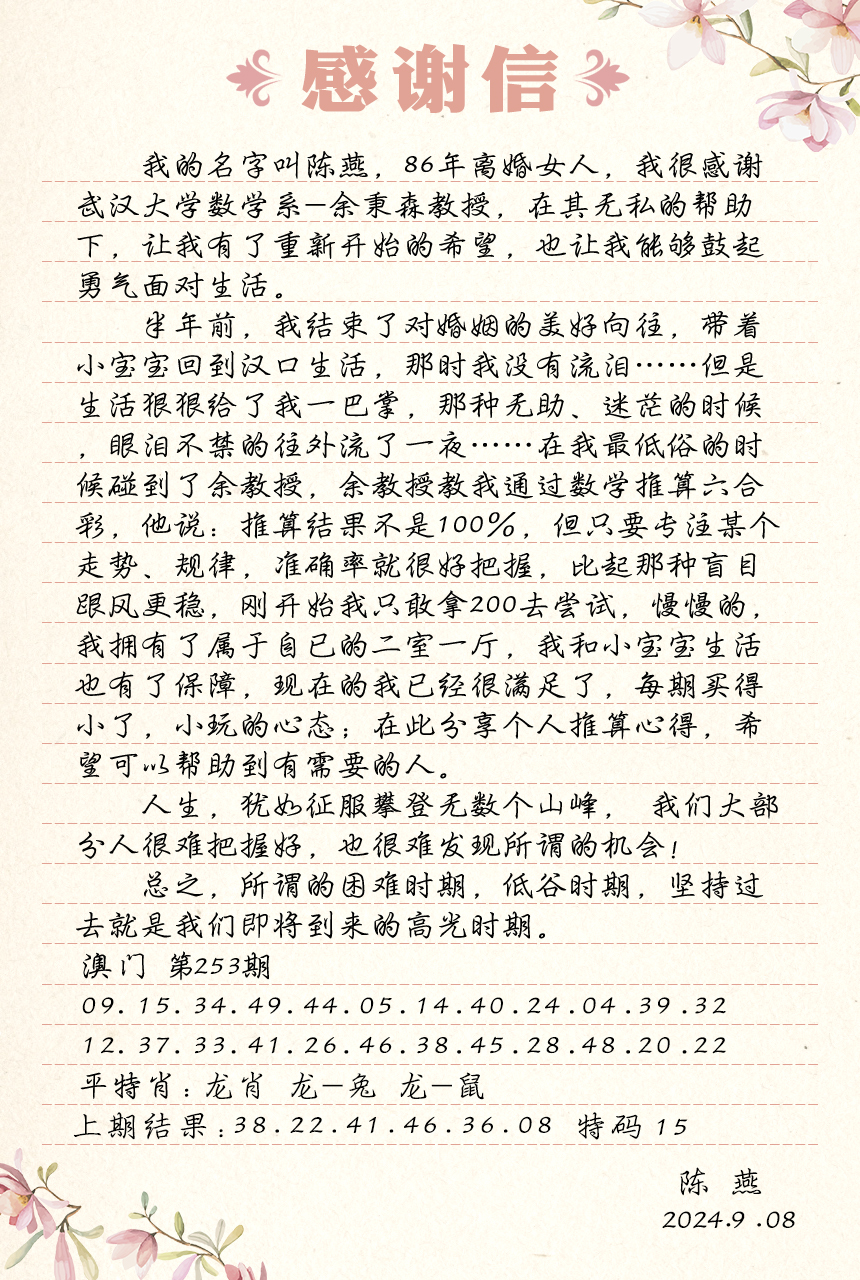 感谢信
我的名字叫陈燕，86年离婚女人，我很感谢
武汉大学数学系—余秉森教授，在其无私的帮助
下，让我有了重新开始的希望，也让我能够鼓起
勇气面对生活。
半年前，我结束了对婚姻的美好向往，带着
小宝宝回到汉口生活，那时我没有流泪……但是
生活狠狠给了我一巴掌，那种无助、迷茫的时候
，眼泪不禁的往外流了一夜……在我最低俗的时
候碰到了余教授，余教授教我通过数学推算六合
彩，他说：推算结果不是100%，但只要专注某个
走势、规律，准确率就很好把握，比起那种盲目
跟风更稳，刚开始我只敢拿200去尝试，慢慢的，
我拥有了属于自已的二室一厅，我和小宝宝生活
也有了保障，现在的我已经很满足了，每期买得
小了，小玩的心态；在此分享个人推算心得，希
望可以帮助到有需要的人。
人生，犹如征服攀登无数个山峰， 我们大部
分人很难把握好，也很难发现所谓的机会！
总之，所谓的困难时期，低谷时期，坚持过
去就是我们即将到来的高光时期。
澳门 第253期
09.15.34.49.44.05.14.40.24.04.39.32
12.37.33.41.26.46.38.45.28.48.20.22
平特肖：龙肖 龙—兔 龙—鼠
上期结果：38.22.41.46.36.08 特码 15
陈 燕
2024.9.08